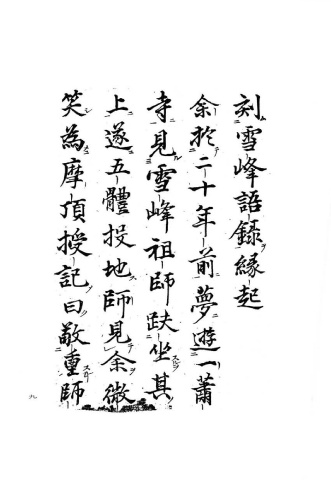 刻雪峰語錄緣起
余於二十年前夢遊一蕭
寺見雪峰祖師趺坐其
上遂五體投地師見余微
笑為摩頂授記曰敬重師